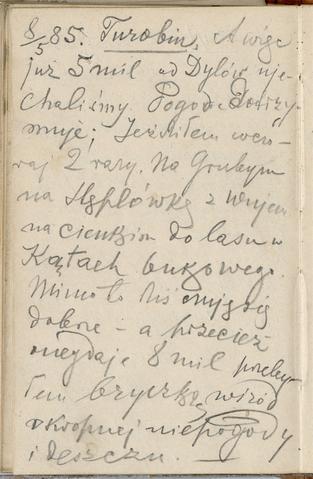 8/5 85. Turobin. A więc
już 5 mil od Dylów uje-
chaliśmy. Pogoda dotrzy-
muje; Jeździłem wczo-
raj 2 razy. Na Grubym
na z Wujem
na cienkim do lasu w
Kątach bukowego.
Mimo to liś my się
dobrze – a przecież
onegdaj 8 mil przeby-
łem bryczką wśród
okropnej niepogody
i deszczu.